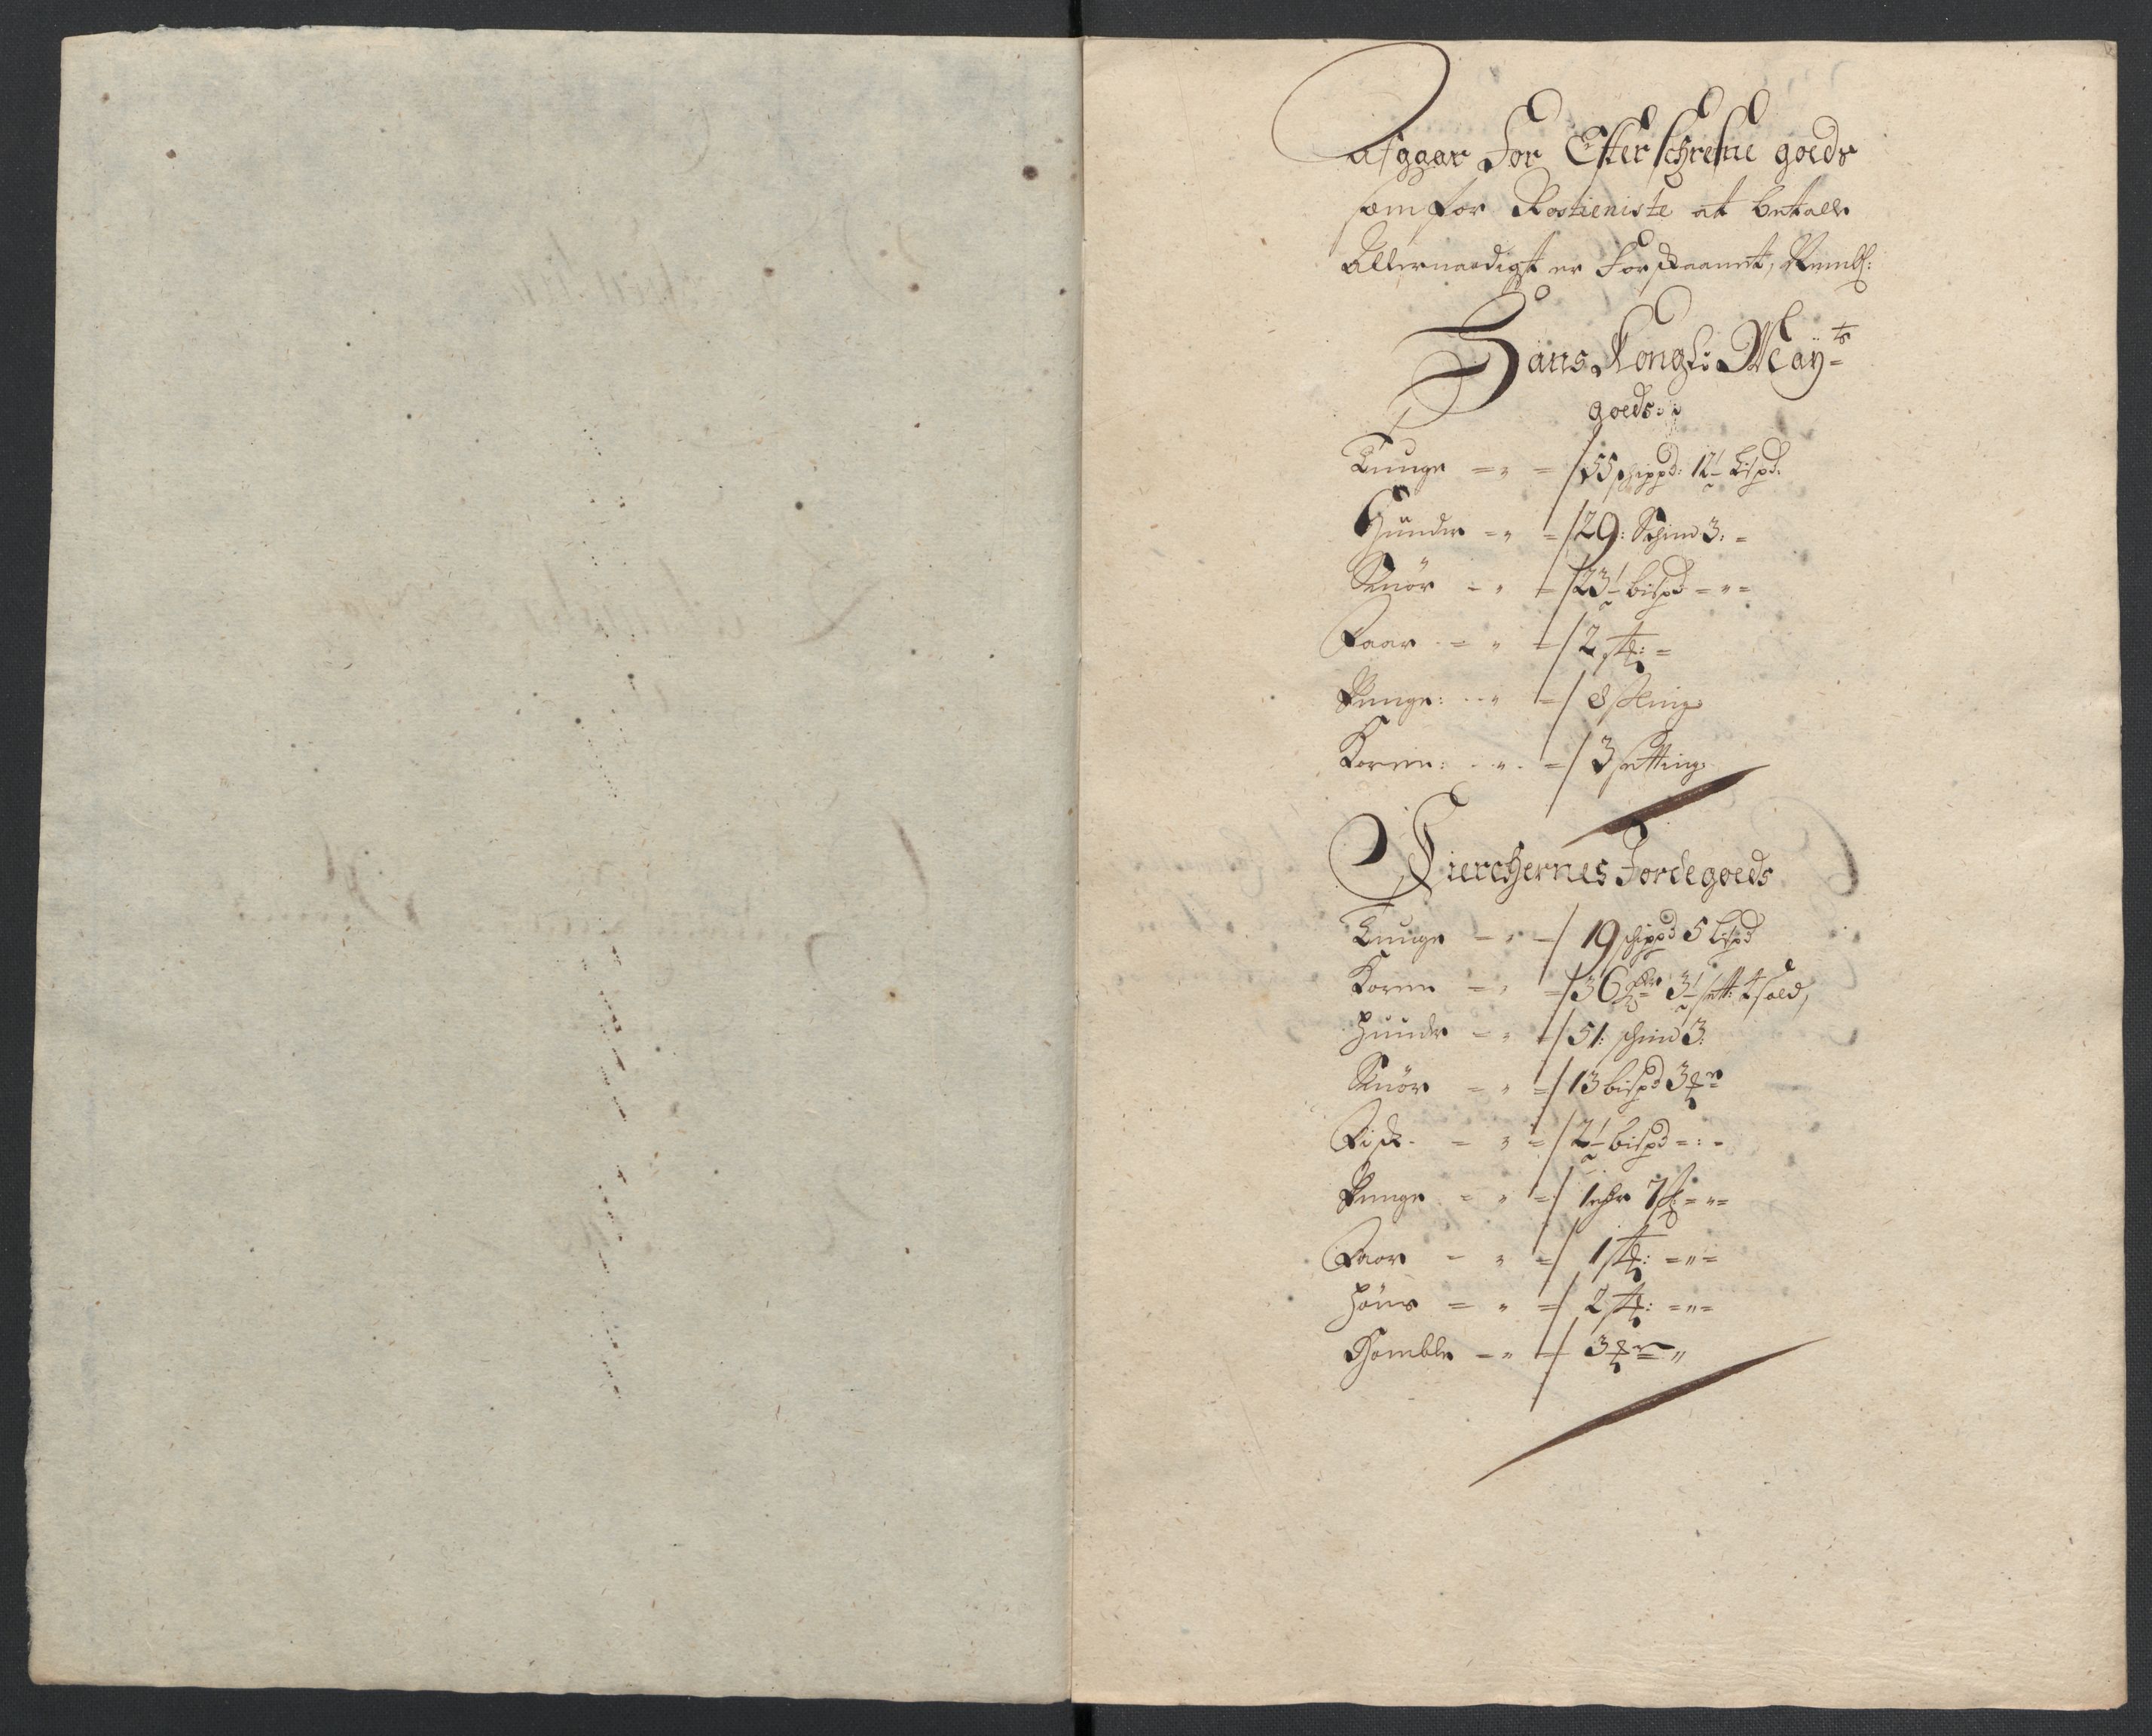 Afgaar for Efterschrefne goeds
som for Rostieniste at betalle
Allernaadigst er forskaanet, Nembl:
Hans Kongl: May:ts
goeds:
Tunge = " = 55 schippd: 12½ Lispd:
Huuder = " = 29: Schind 3: =
Smör = " = 23½ bispd = " =
Faar = " = 2 stk: =
Penge: = " = 8 skling
Korren: = " = 3 setting
Kierchernes Jordegoeds
Tunge = " = 19 schippd 5 Lispd
Korren = " = 36 3½ sett: 1 sold,
Huuder = " = 51: schind 3:
Smör = " = 13 bispd 3
Fisk = " = 2½ bispd = : =
Penge = " = 1 rdr 7 s: = " =
Faar = " = 1 stk: = " =
Höns = " = 2 stk: = " =
Homble = " = 3